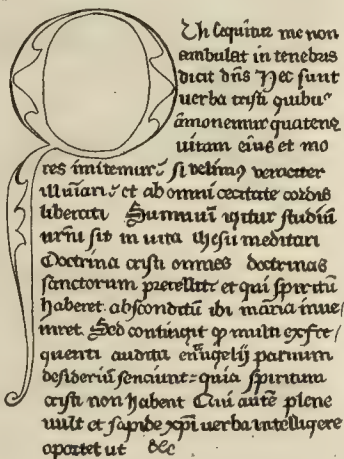 Qui sequitur me non
ambulat in tenebris
dicit dñs Hec sunt
uerba cristi quibus
āmonemur quatenꝫ
uitam eius et mo
res imitemur: si velimꝰ veraciter
illūīari: et ab omni cecitate cordis
liberari Summuī igitur studiū
nr̄ūī sit in uita ihesu meditari
Doctrina cristi omnes doctrinas
sanctorum precellit: et qui spiritū
haberet absconditū ibi māna inue-
niret. Sed contingit ꝙ multi ex fre-
quenti auditu euāgelij paruum
desideriū senciunt: quia spiritum
cristi non habent Qui autē plene
uult et sapide xp̄i uerba intelligere
oportet ut &c